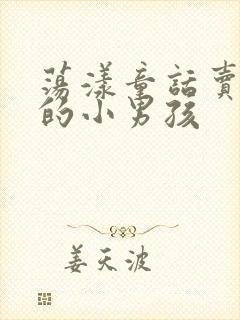 荡漾童話賣
的小男孩
姜天波